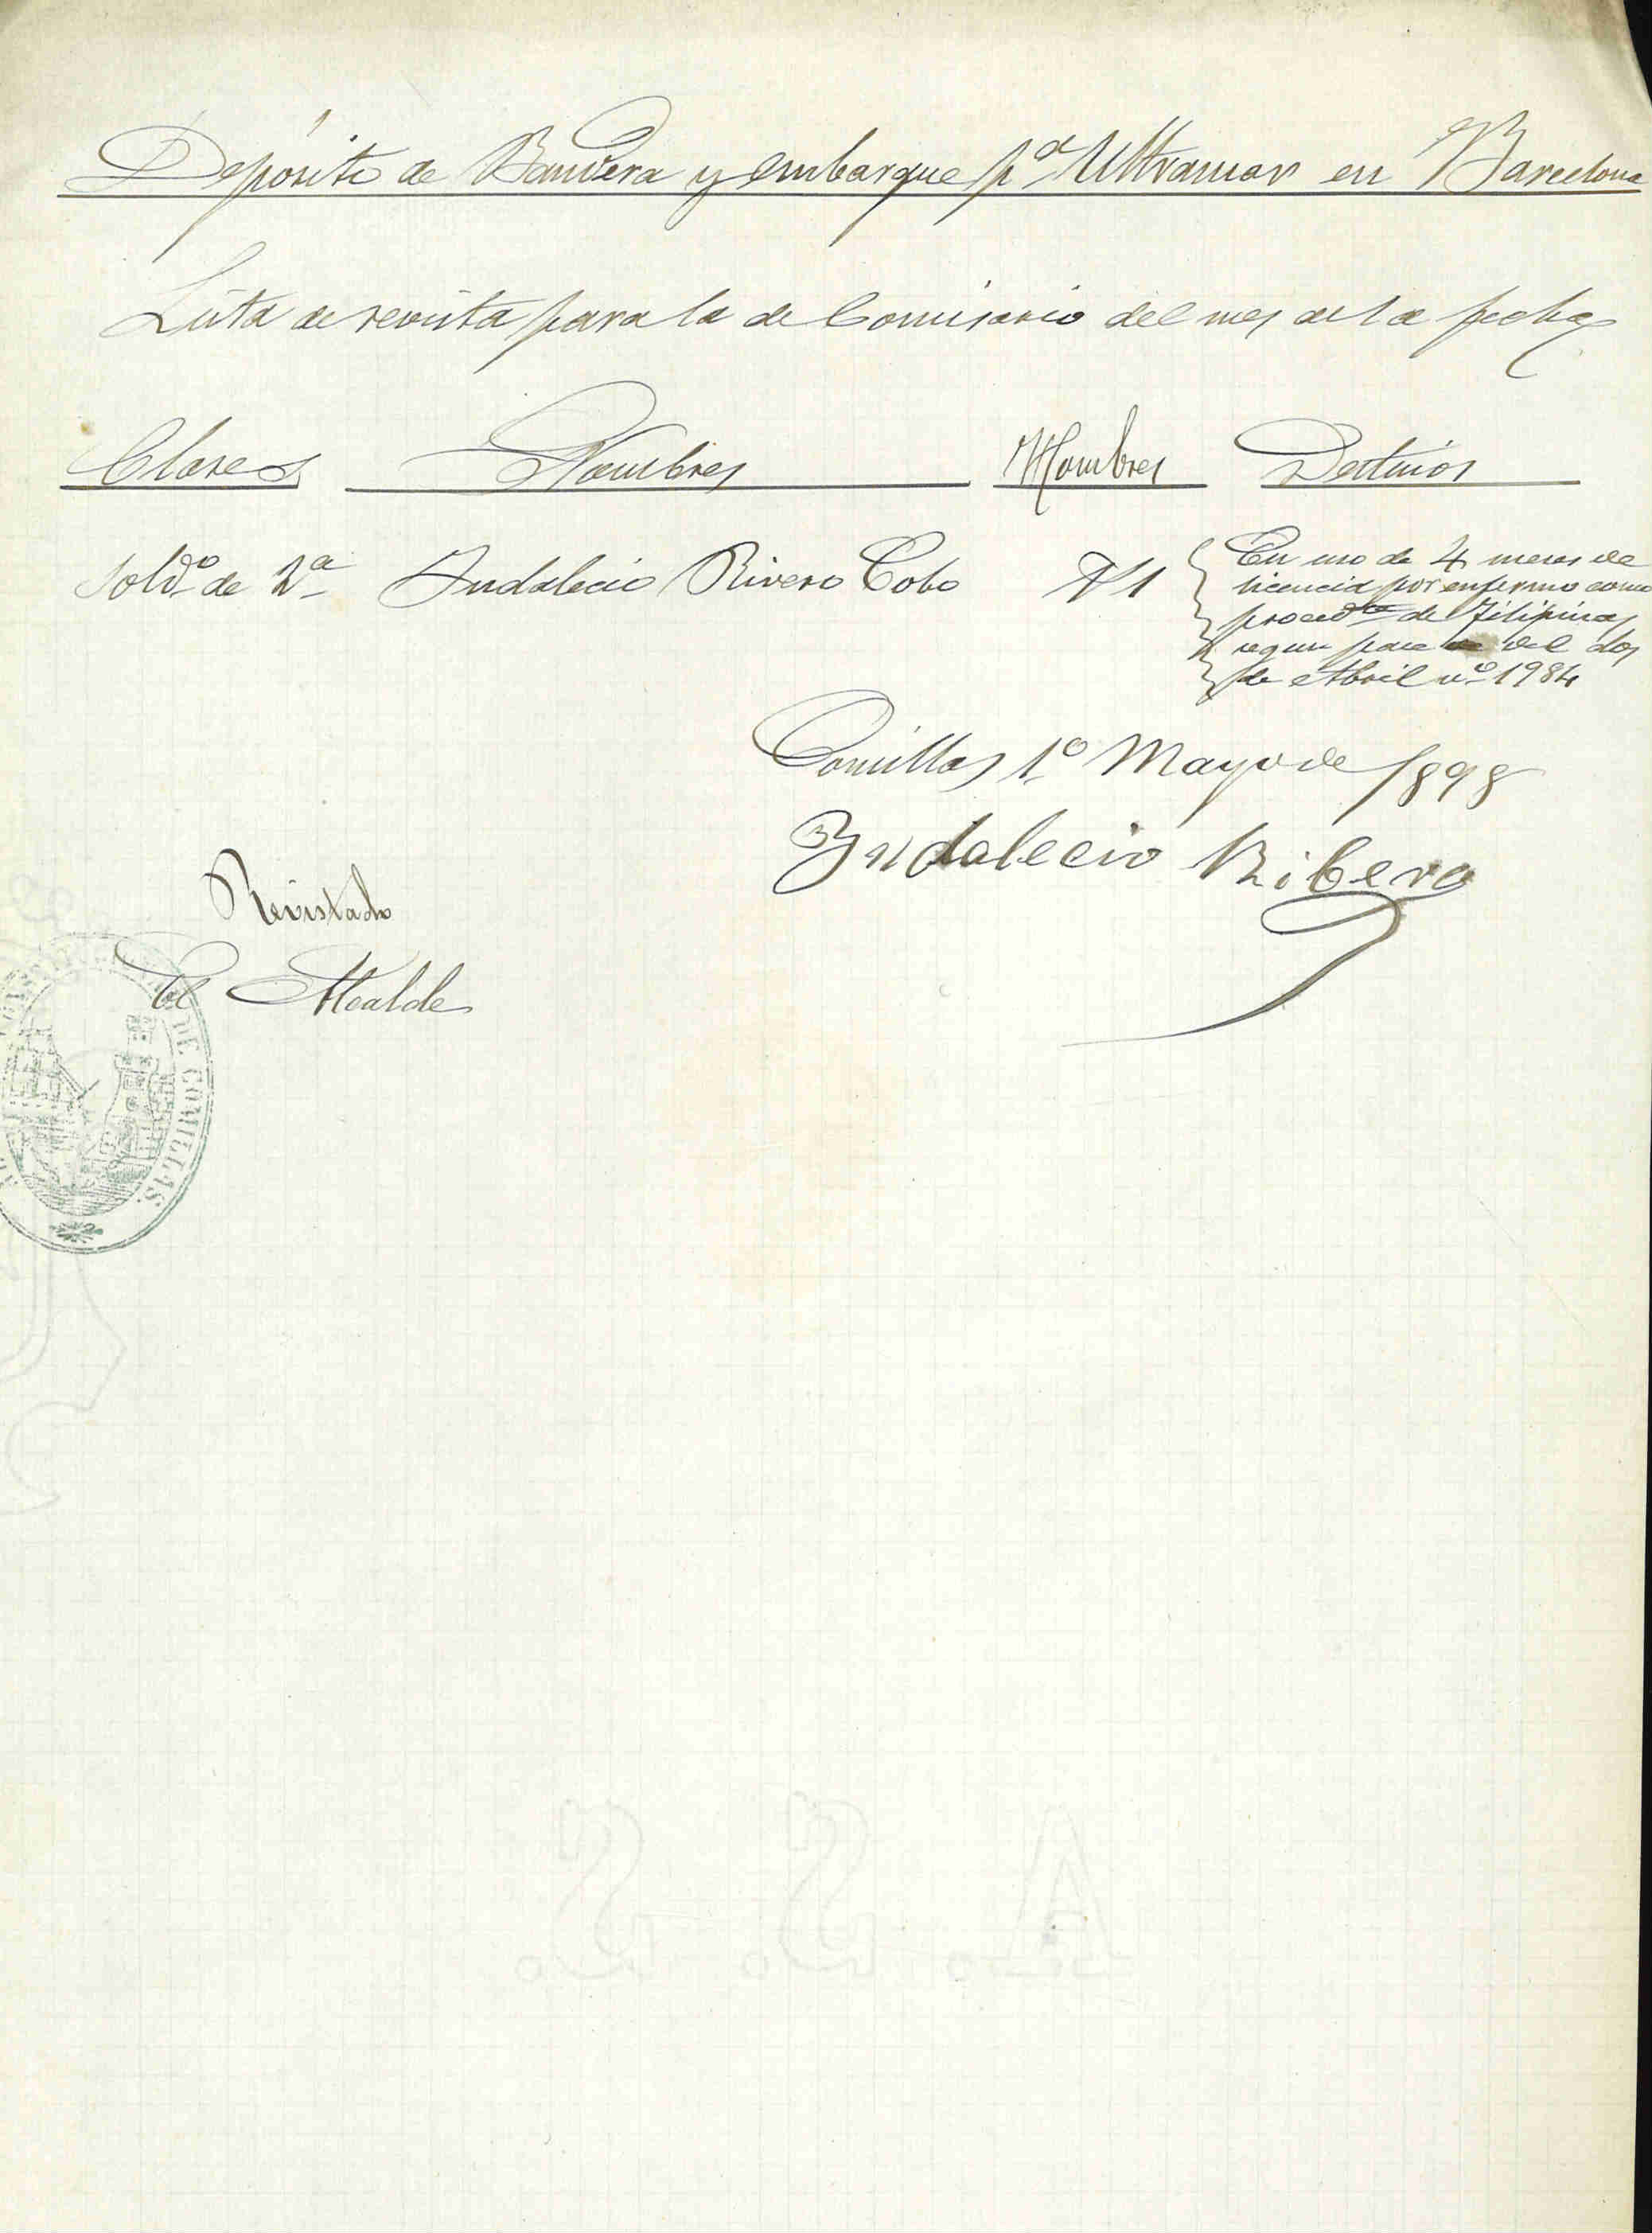 Depósito de Bandera y embarque pª Ultramar en Barcelona
Lista de revista para la de Comisario del mes de la fecha
Clases Nombres Hombres Destinos
Soldº de 2ª Indalecio Rivero Cobo 1
En uso de 4 meses de
licencia por enfermo como
procedte de Filipinas
segun pase del dos
de Abril nº 1984
Comillas 1º Mayo de 1898
Yndalecio Ribero
Revistado
El Alcalde
DE COMILLAS
A. S. S.